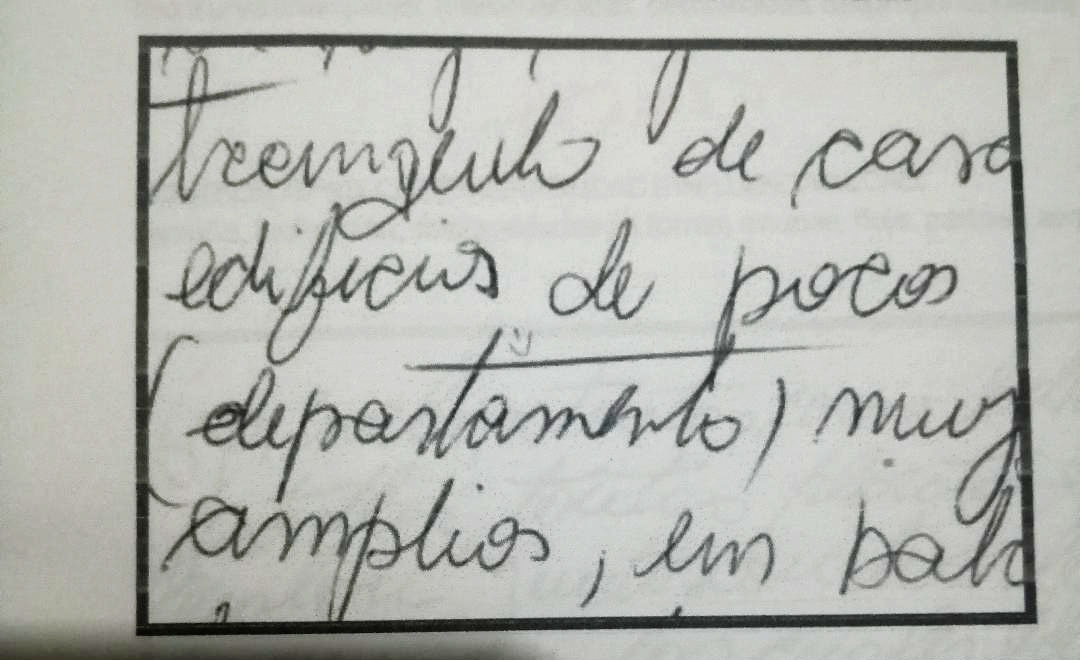 tranquilo de casa
edificios de pocos
(departamento) muy
amplios, en balc